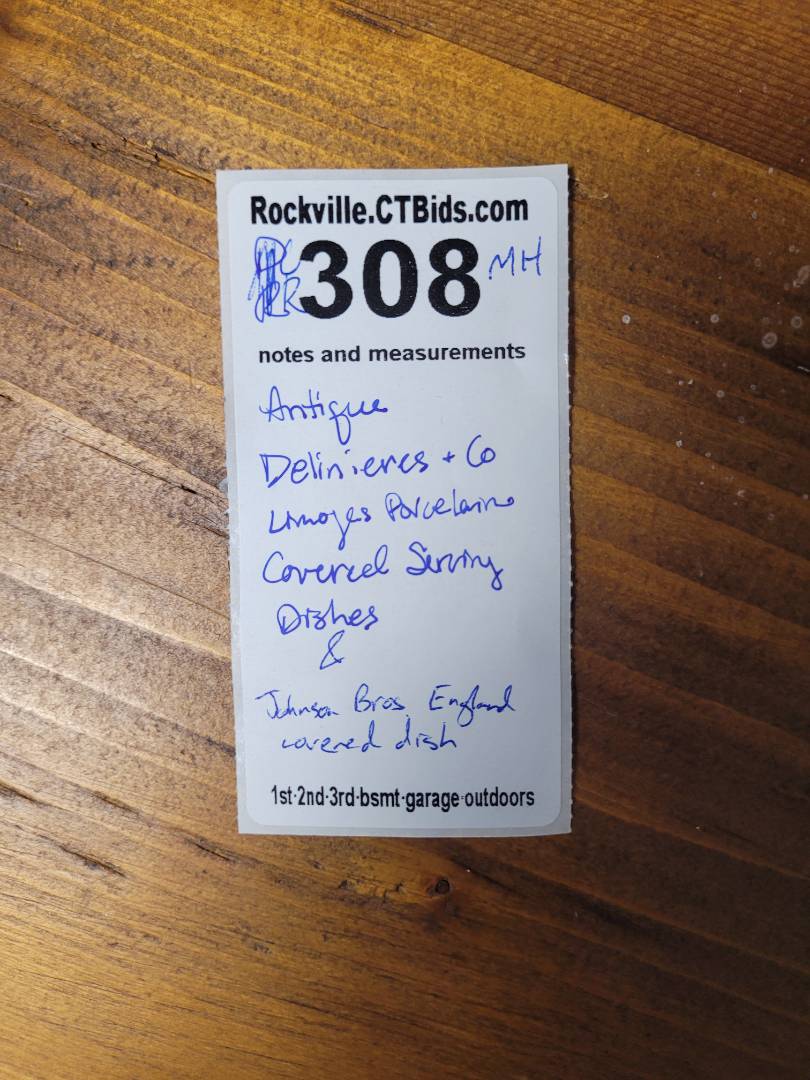 Rockville.CTBids.com
308 MH
notes and measurements
Antique
Delinieres + Co
Limoges Porcelain
Covered Serving
Dishes
&
Johnson Bros. England
covered dish
1st·2nd·3rd·bsmt·garage·outdoors